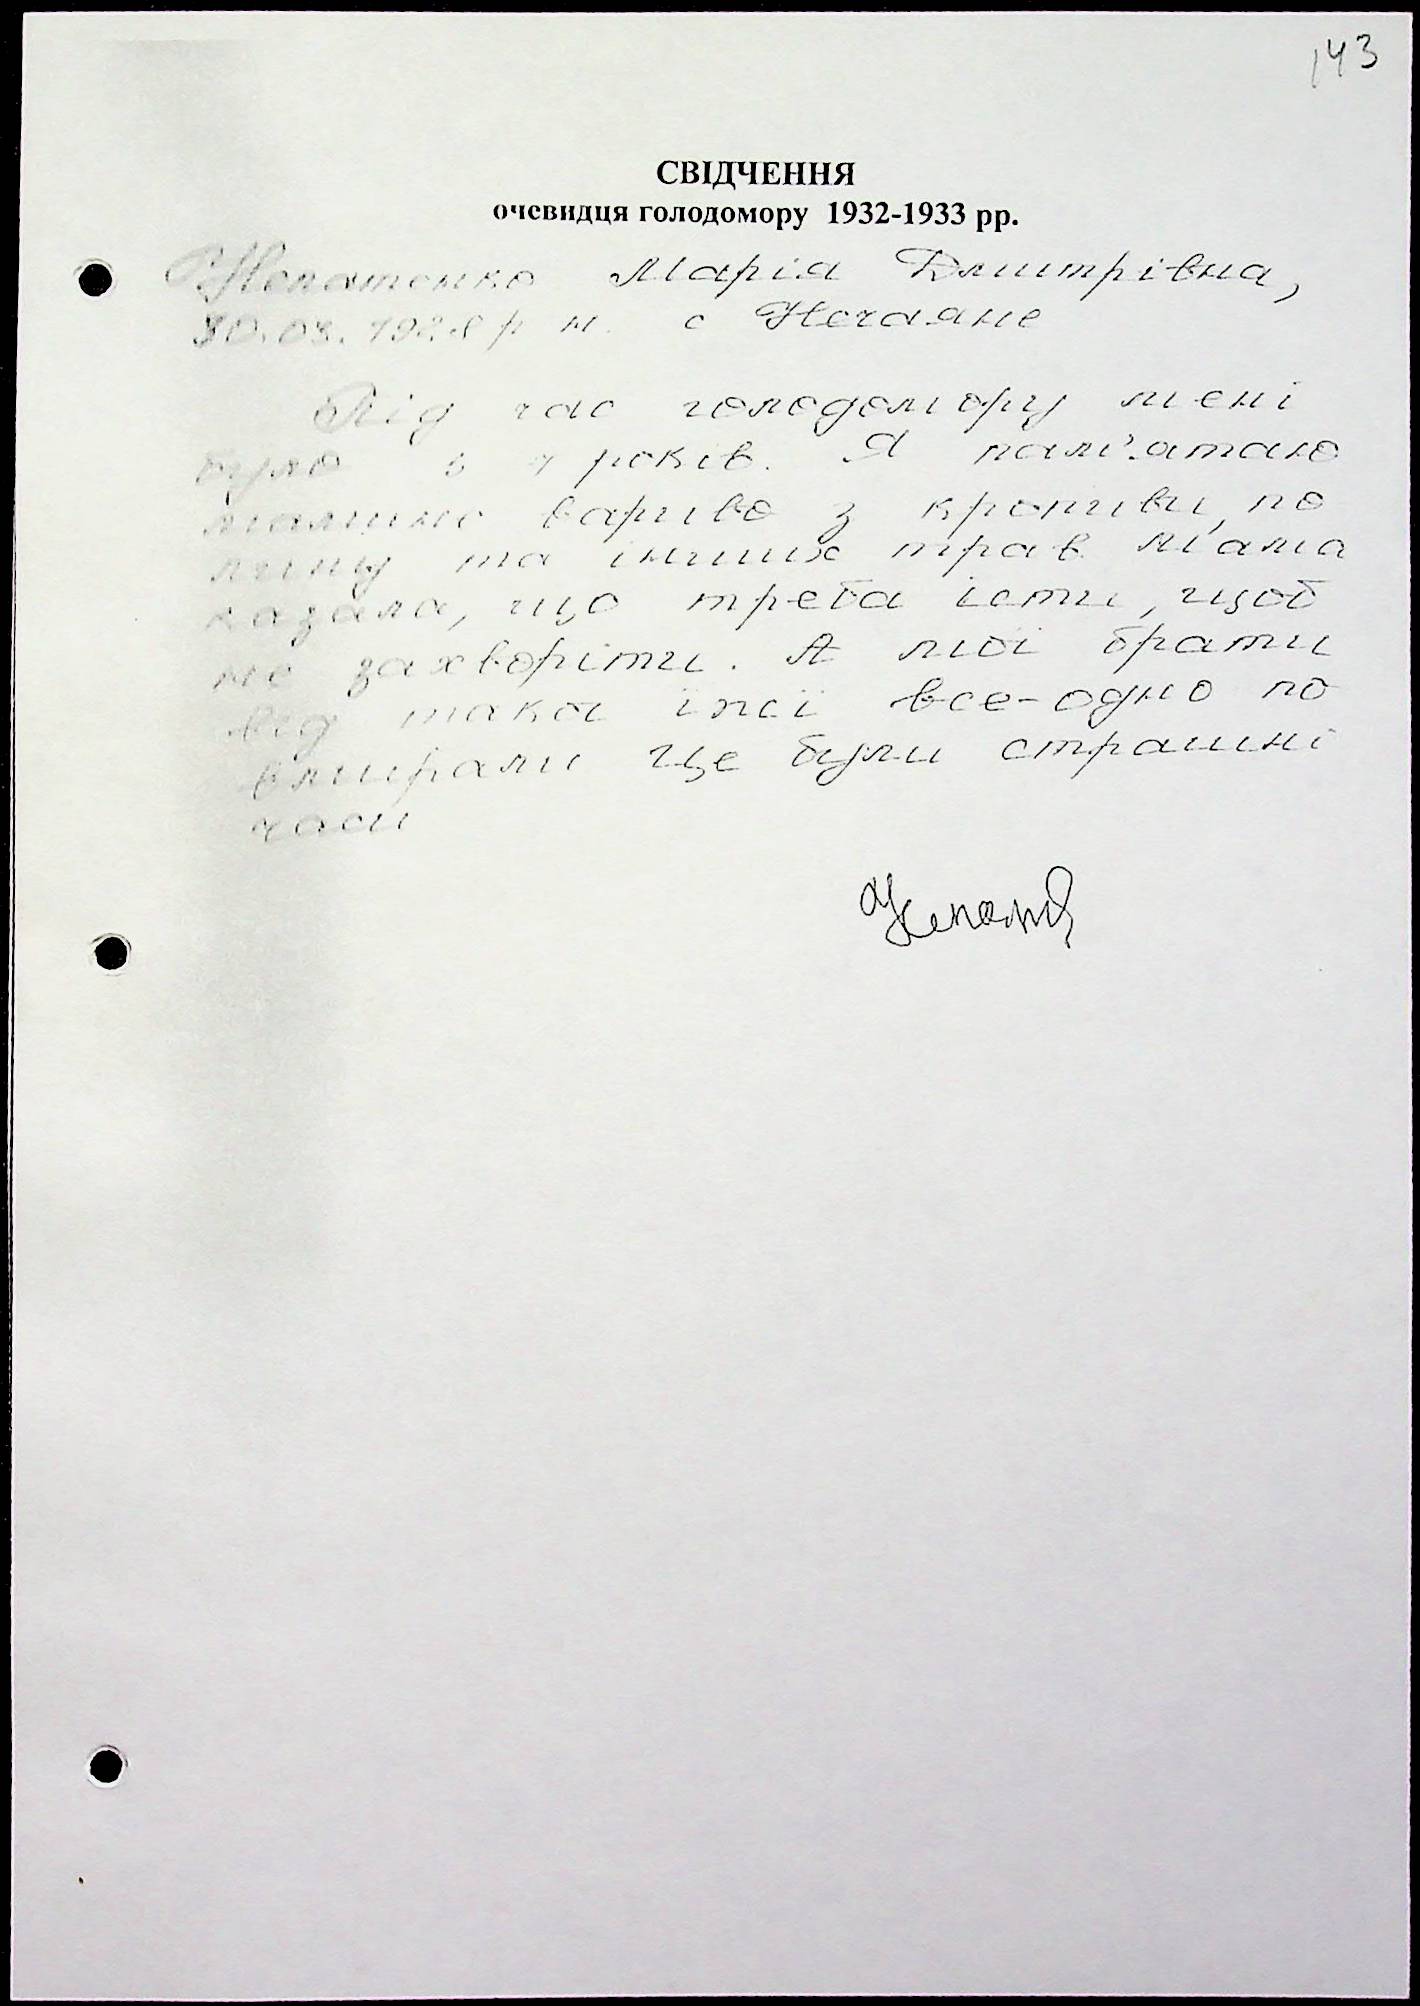 143
СВІДЧЕННЯ
очевидця голодомору 1932-1933 рр.
Непотенко Марія Дмитрівна,
30.03.1928 р н. с Нечаяне
Під час голодомору мені
було років. Я пам'ятаю
мамине вариво з кропиви, по
лину та інших трав Мама
казала, що треба їсти, щоб
не захворіти. А мої брати
від такої їжі все-одно по
вмирали Це були страшні
часи